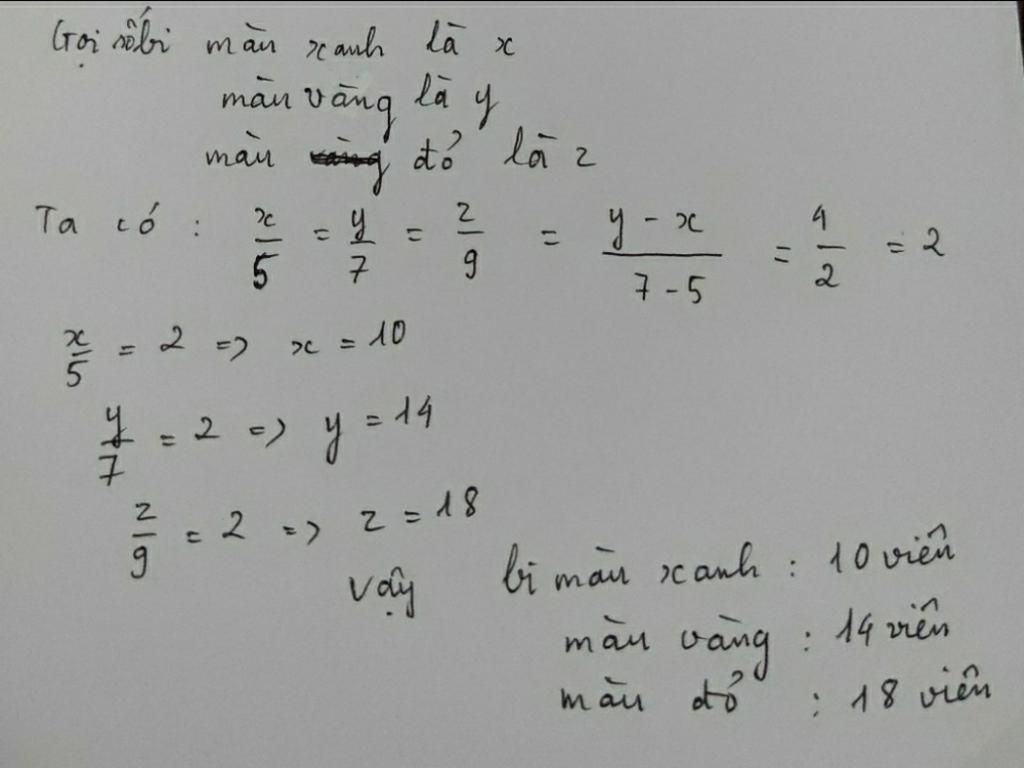 Gọi số bi màu xanh là x
màu vàng là y
màu đỏ là z
Ta có : x/5 = y/7 = z/9 = (y - x)/(7 - 5) = 4/2 = 2
x/5 = 2 => x = 10
y/7 = 2 => y = 14
z/9 = 2 => z = 18
Vậy bi màu xanh : 10 viên
màu vàng : 14 viên
màu đỏ : 18 viên